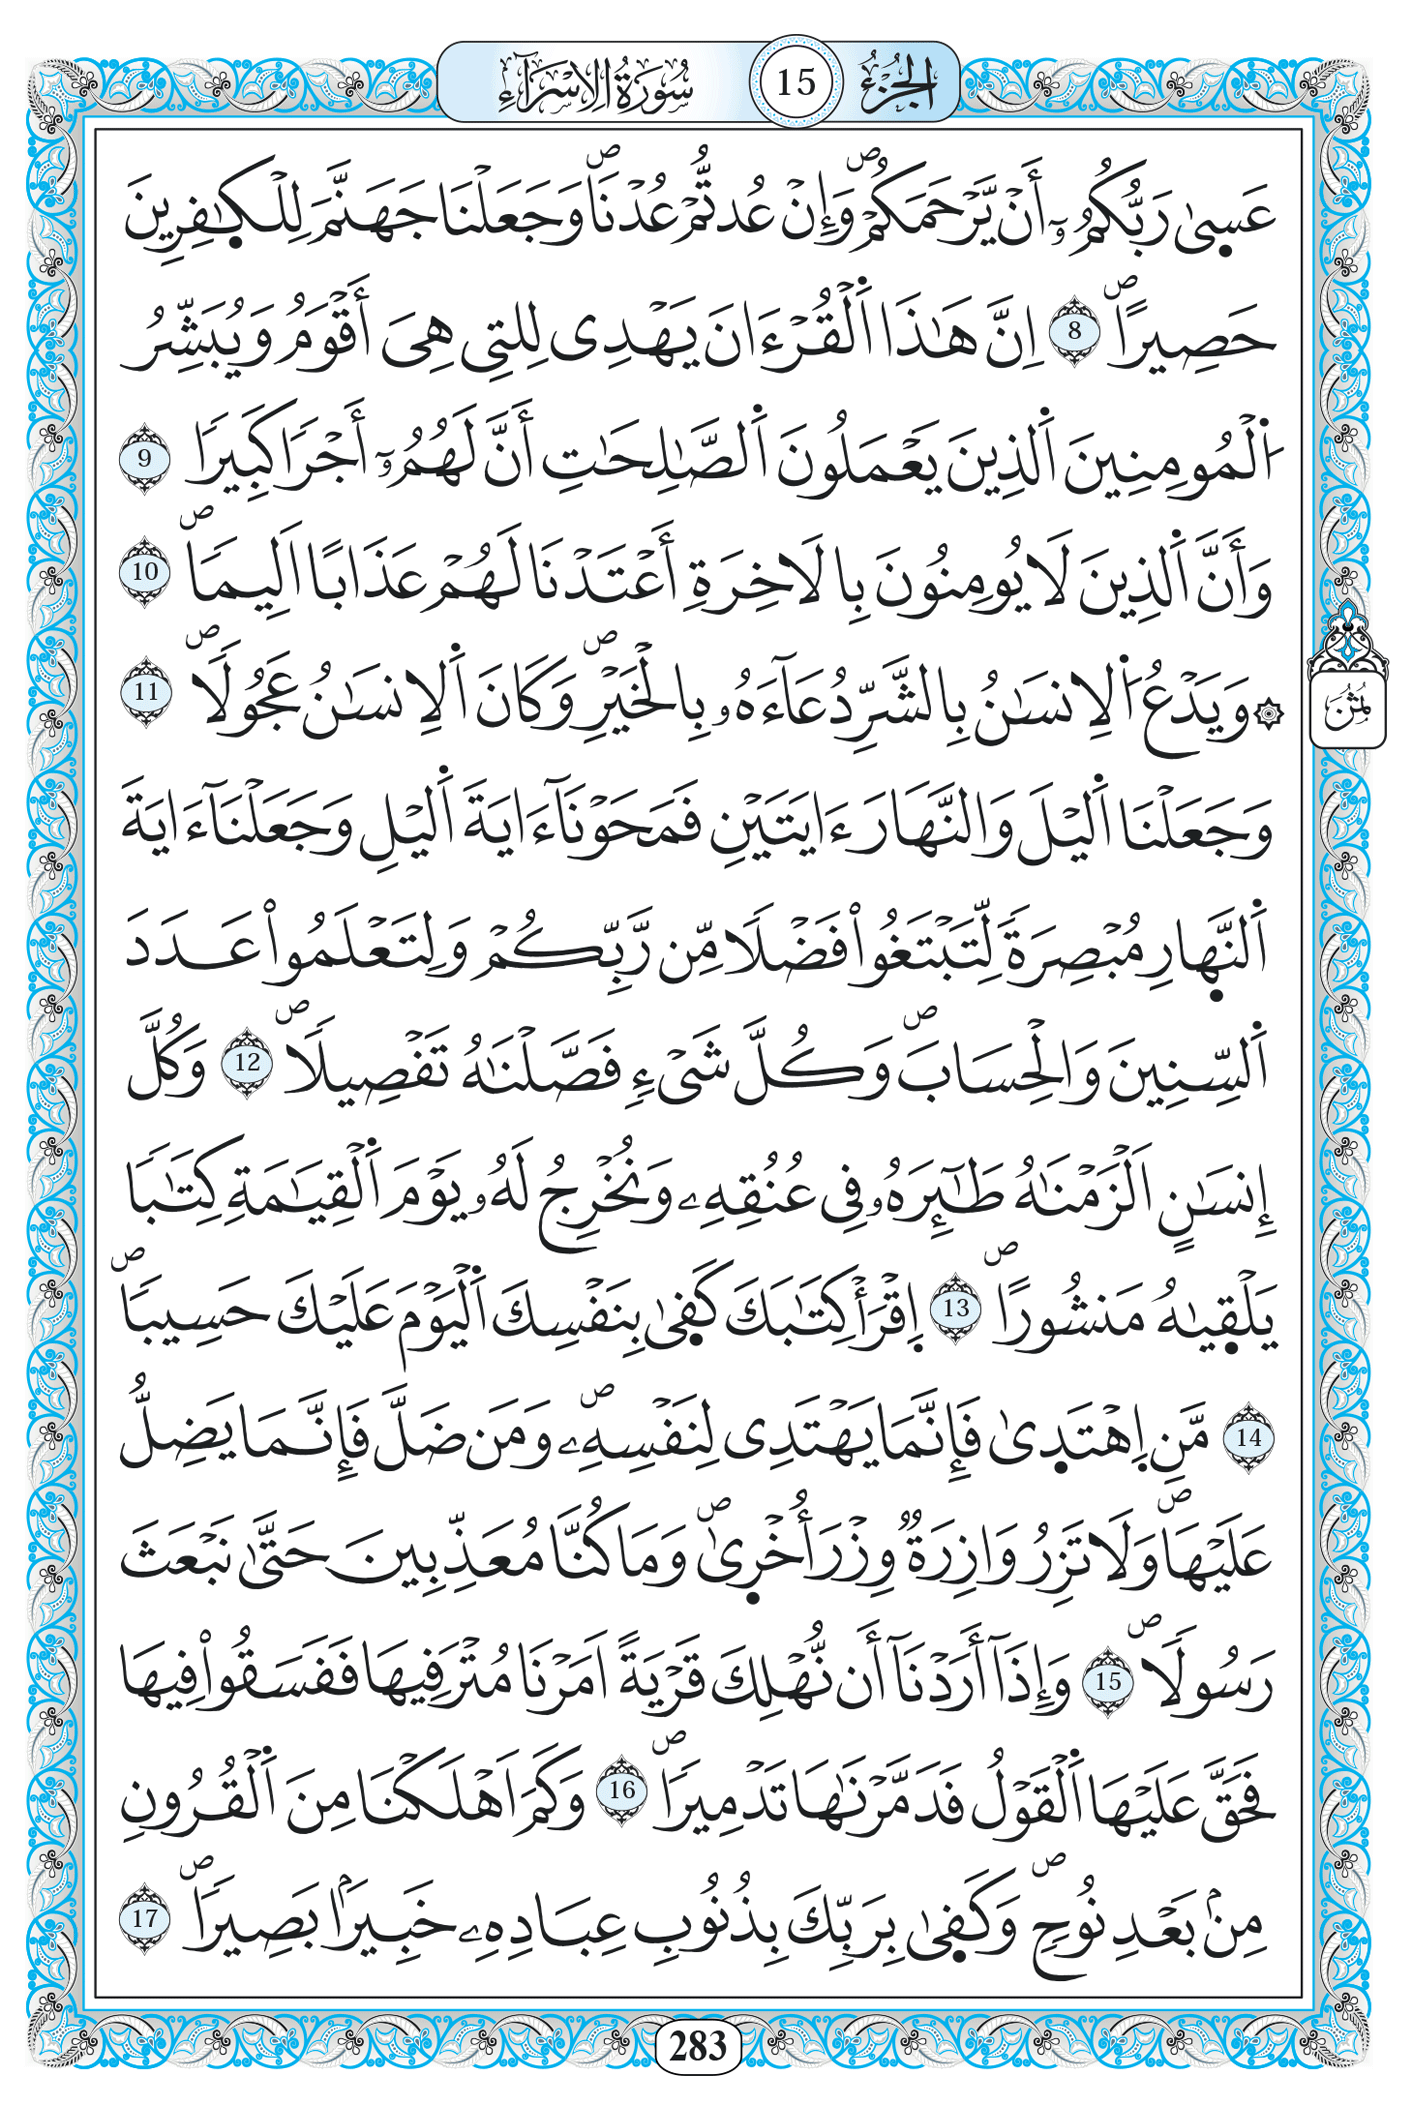 الجزء 15 سورة الإسراء
عَسٜىٰ رَبُّكُمُۥٓ أَنْ يَّرْحَمَكُمْۖ وَإِنْ عُدتُّمْ عُدْنَاۖ وَجَعَلْنَا جَهَنَّمَ لِلْكٜـٰفِرِينَ
حَصِيراًۖ 8 اِنَّ هَـٰذَا اَ۬لْقُرْءَانَ يَهْدِى لِلتِى هِىَ أَقْوَمُ وَيُبَشِّرُ
اُ۬لْمُومِنِينَ اَ۬لذِينَ يَعْمَلُونَ اَ۬لصَّـٰلِحَـٰتِ أَنَّ لَهُمُۥٓ أَجْراَ كَبِيراَ 9
وَأَنَّ اَ۬لذِينَ لَا يُومِنُونَ بِالَاخِرَةِ أَعْتَدْنَا لَهُمْ عَذَاباً اَلِيماَۖ 10
۞ وَيَدْعُ اُ۬لِانسَـٰنُ بِالشَّرِّ دُعَآءَهُۥ بِالْخَيْرِۖ وَكَانَ اَ۬لِانسَـٰنُ عَجُولاَۖ 11
وَجَعَلْنَا اَ۬ليْلَ وَالنَّهَارَ ءَايَتَيْنِ فَمَحَوْنَآ ءَايَةَ اَ۬ليْلِ وَجَعَلْنَآ ءَايَةَ
اَ۬لنَّهٜارِ مُبْصِرَةَ لِّتَبْتَغُواْ فَضْلاَ مِّن رَّبِّكُمْ وَلِتَعْلَمُواْ عَدَدَ
اَ۬لسِّنِينَ وَالْحِسَابَۖ وَكُلَّ شَىْءٍ فَصَّلْنَـٰهُ تَفْصِيلاَۖ 12 وَكُلَّ
إِنسَـٰنٍ اَلْزَمْنَـٰهُ طَـٰٓئِرَهُۥ فِى عُنُقِهِۦ وَنُخْرِجُ لَهُۥ يَوْمَ اَ۬لْقِيَـٰمَةِ كِتَـٰباَ
يَلْقٜىٰهُ مَنشُوراًۖ 13 اِ۪قْرَأْ كِتَـٰبَكَ كَفٜىٰ بِنَفْسِكَ اَ۬لْيَوْمَ عَلَيْكَ حَسِيباَۖ
14 مَّنِ اِ۪هْتَدٜىٰ فَإِنَّمَا يَهْتَدِى لِنَفْسِهِۦۖ وَمَن ضَلَّ فَإِنَّمَا يَضِلُّ
عَلَيْهَاۖ وَلَا تَزِرُ وَازِرَةٌ وِزْرَ أُخْرٜىٰۖ وَمَا كُنَّا مُعَذِّبِينَ حَتَّىٰ نَبْعَثَ
رَسُولاَۖ 15 وَإِذَآ أَرَدْنَآ أَن نُّهْلِكَ قَرْيَةً اَمَرْنَا مُتْرَفِيهَا فَفَسَقُواْ فِيهَا
فَحَقَّ عَلَيْهَا اَ۬لْقَوْلُ فَدَمَّرْنَـٰهَا تَدْمِيراَۖ 16 وَكَمَ اَهْلَكْنَا مِنَ اَ۬لْقُرُونِ
مِنۢ بَعْدِ نُوحٍۖ وَكَفٜىٰ بِرَبِّكَ بِذُنُوبِ عِبَادِهِۦ خَبِيراَۢ بَصِيراَۖ 17
ثُمُن
283